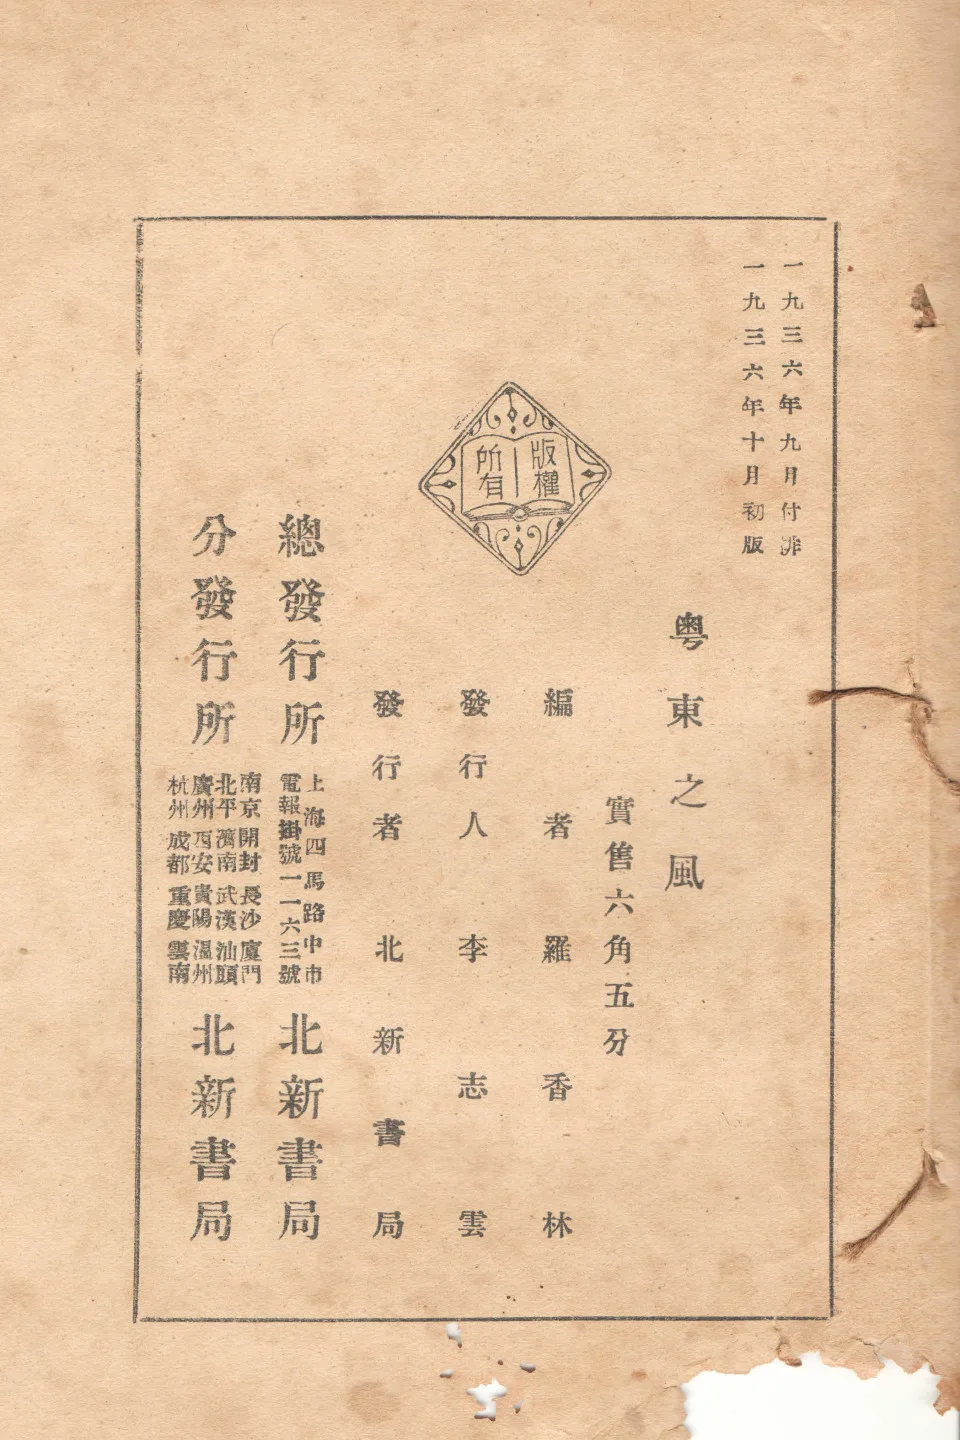 一九三六年九月付排
一九三六年十月初版
粵東之風
實售六角五分
編者羅香林
發行人李志雲
發行者北新書局
版權
所有
總發行所
上海四馬路中市
電報掛號一一六三號
北新書局
分發行所
南京開封長沙廈門
北平濟南武漢汕頭
廣州西安貴陽溫州
杭州成都重慶雲南
北新書局